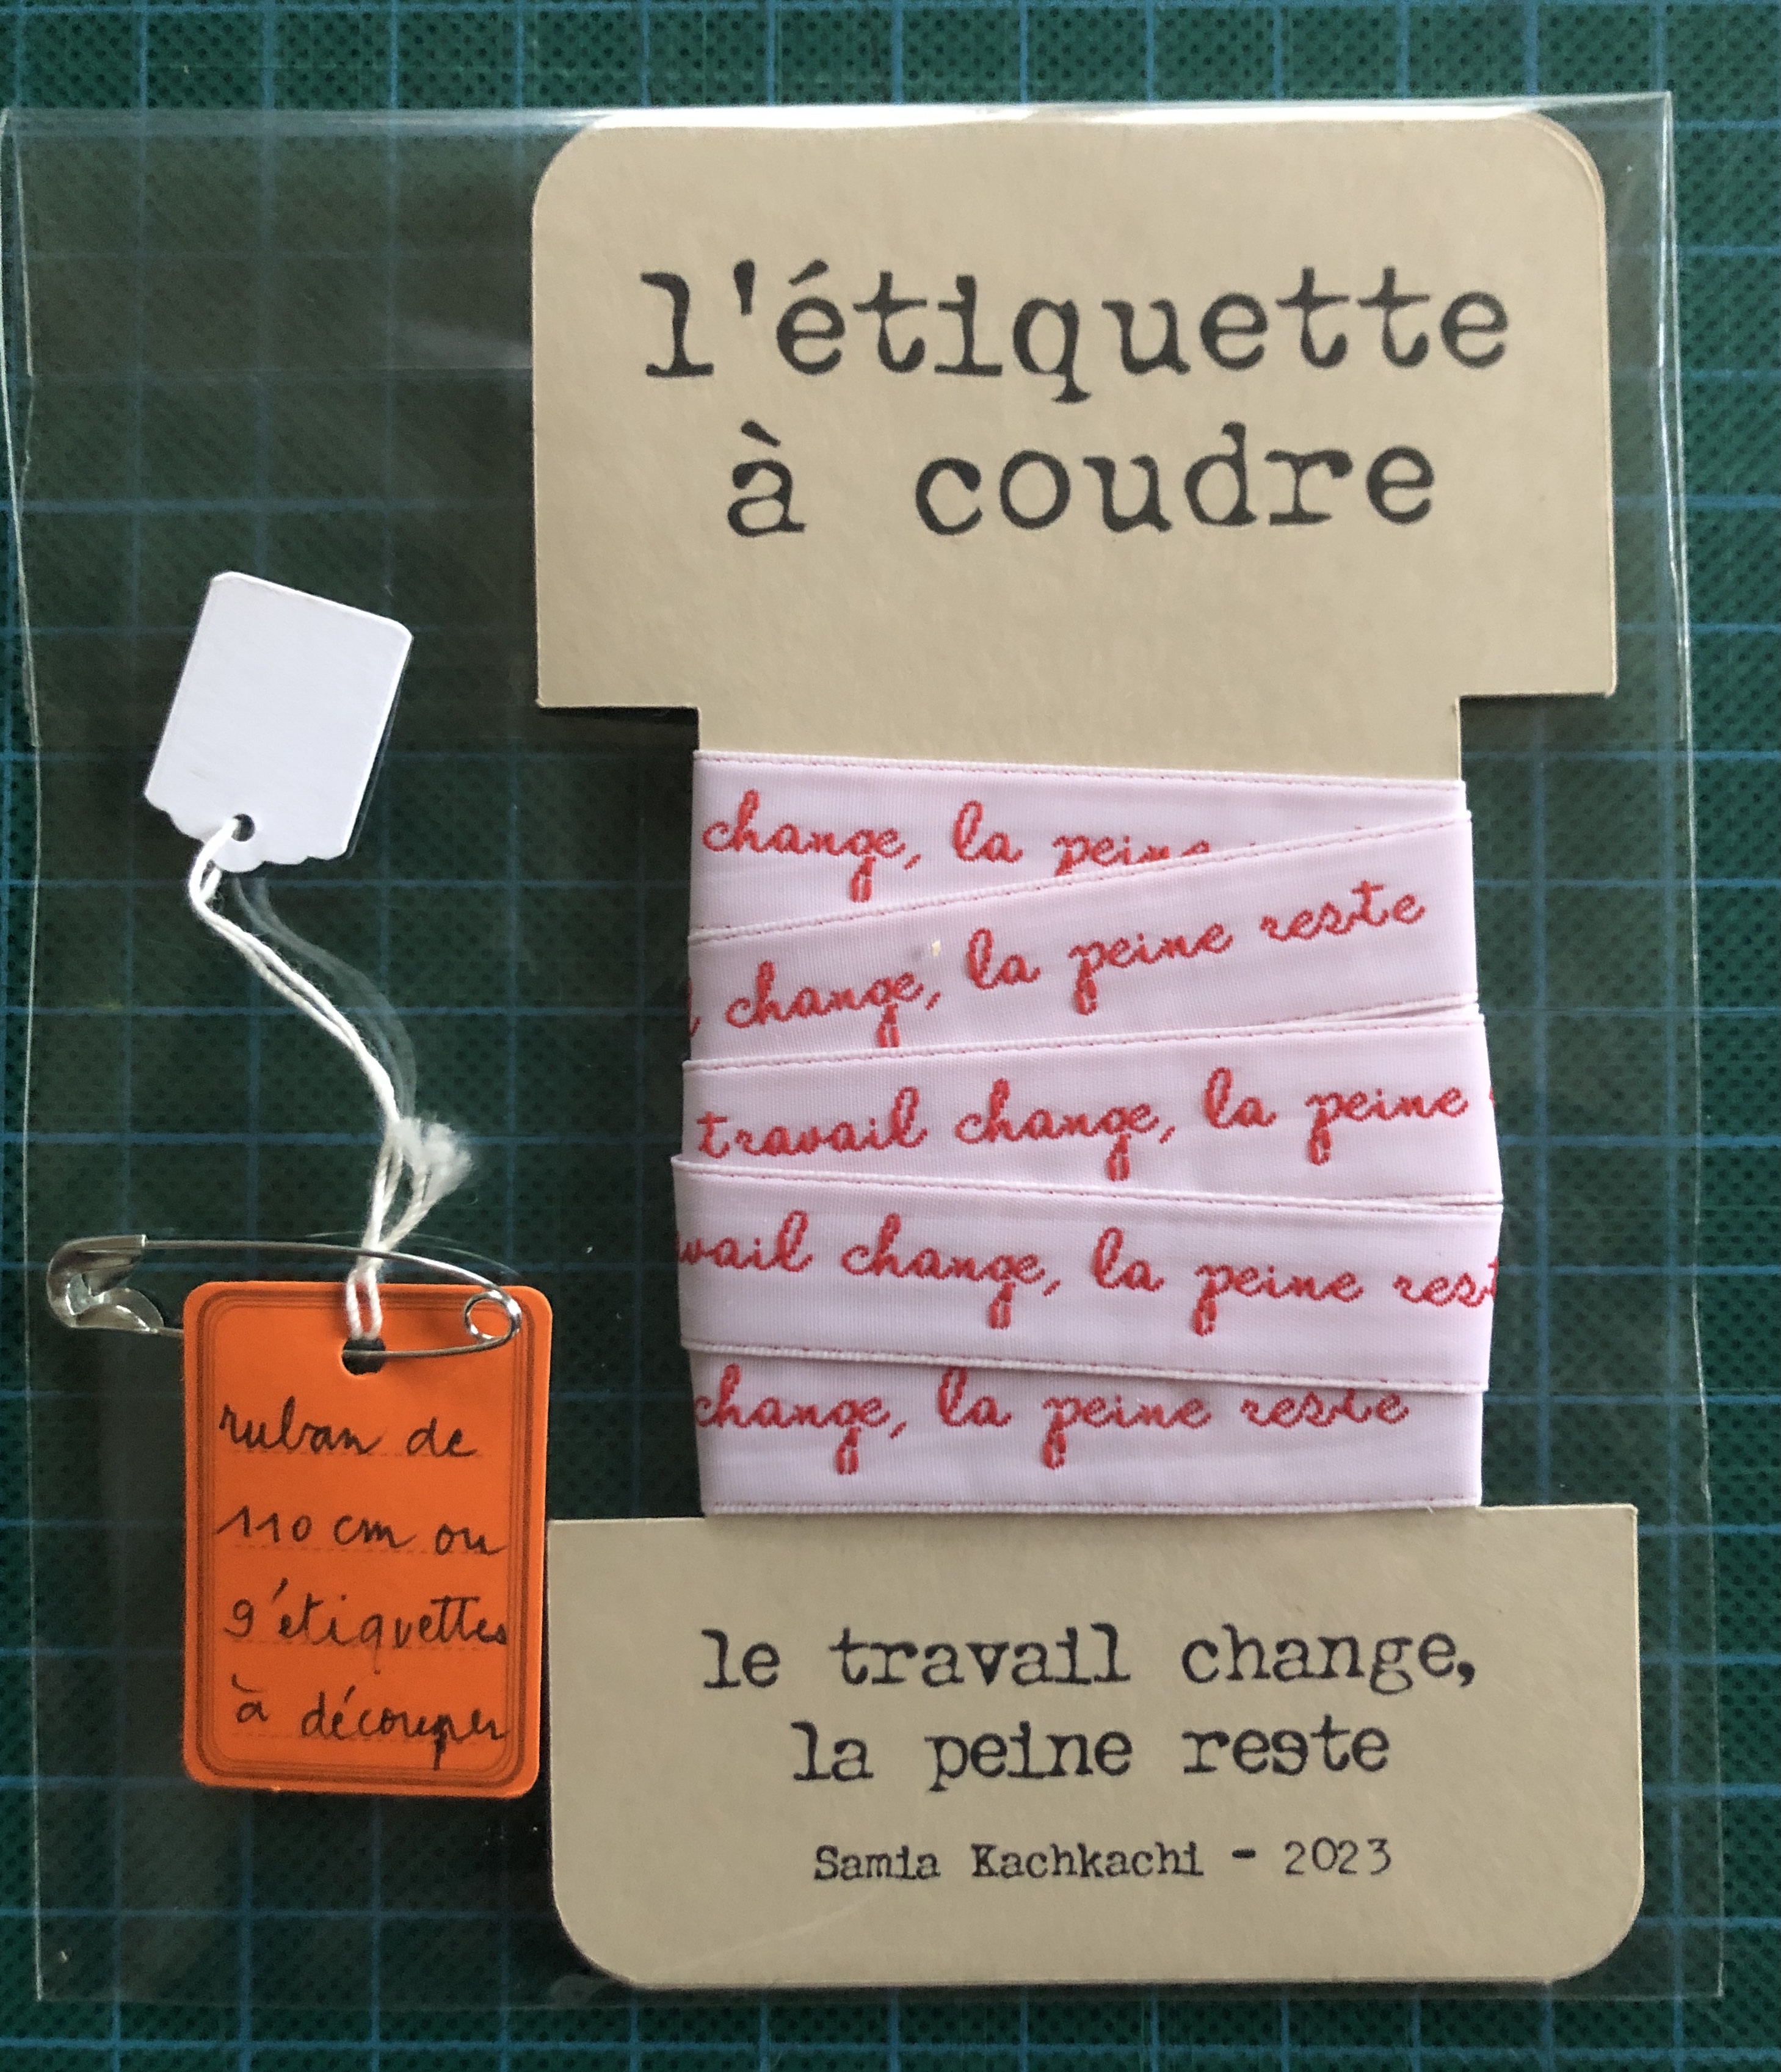 l'étiquette
à coudre
change, la peine
change, la peine reste
travail change, la peine
vail change, la peine rest
change, la peine reste
ruban de
110 cm ou
9 étiquettes
à découper
le travail change,
la peine reste
Samia Kachkachi - 2023